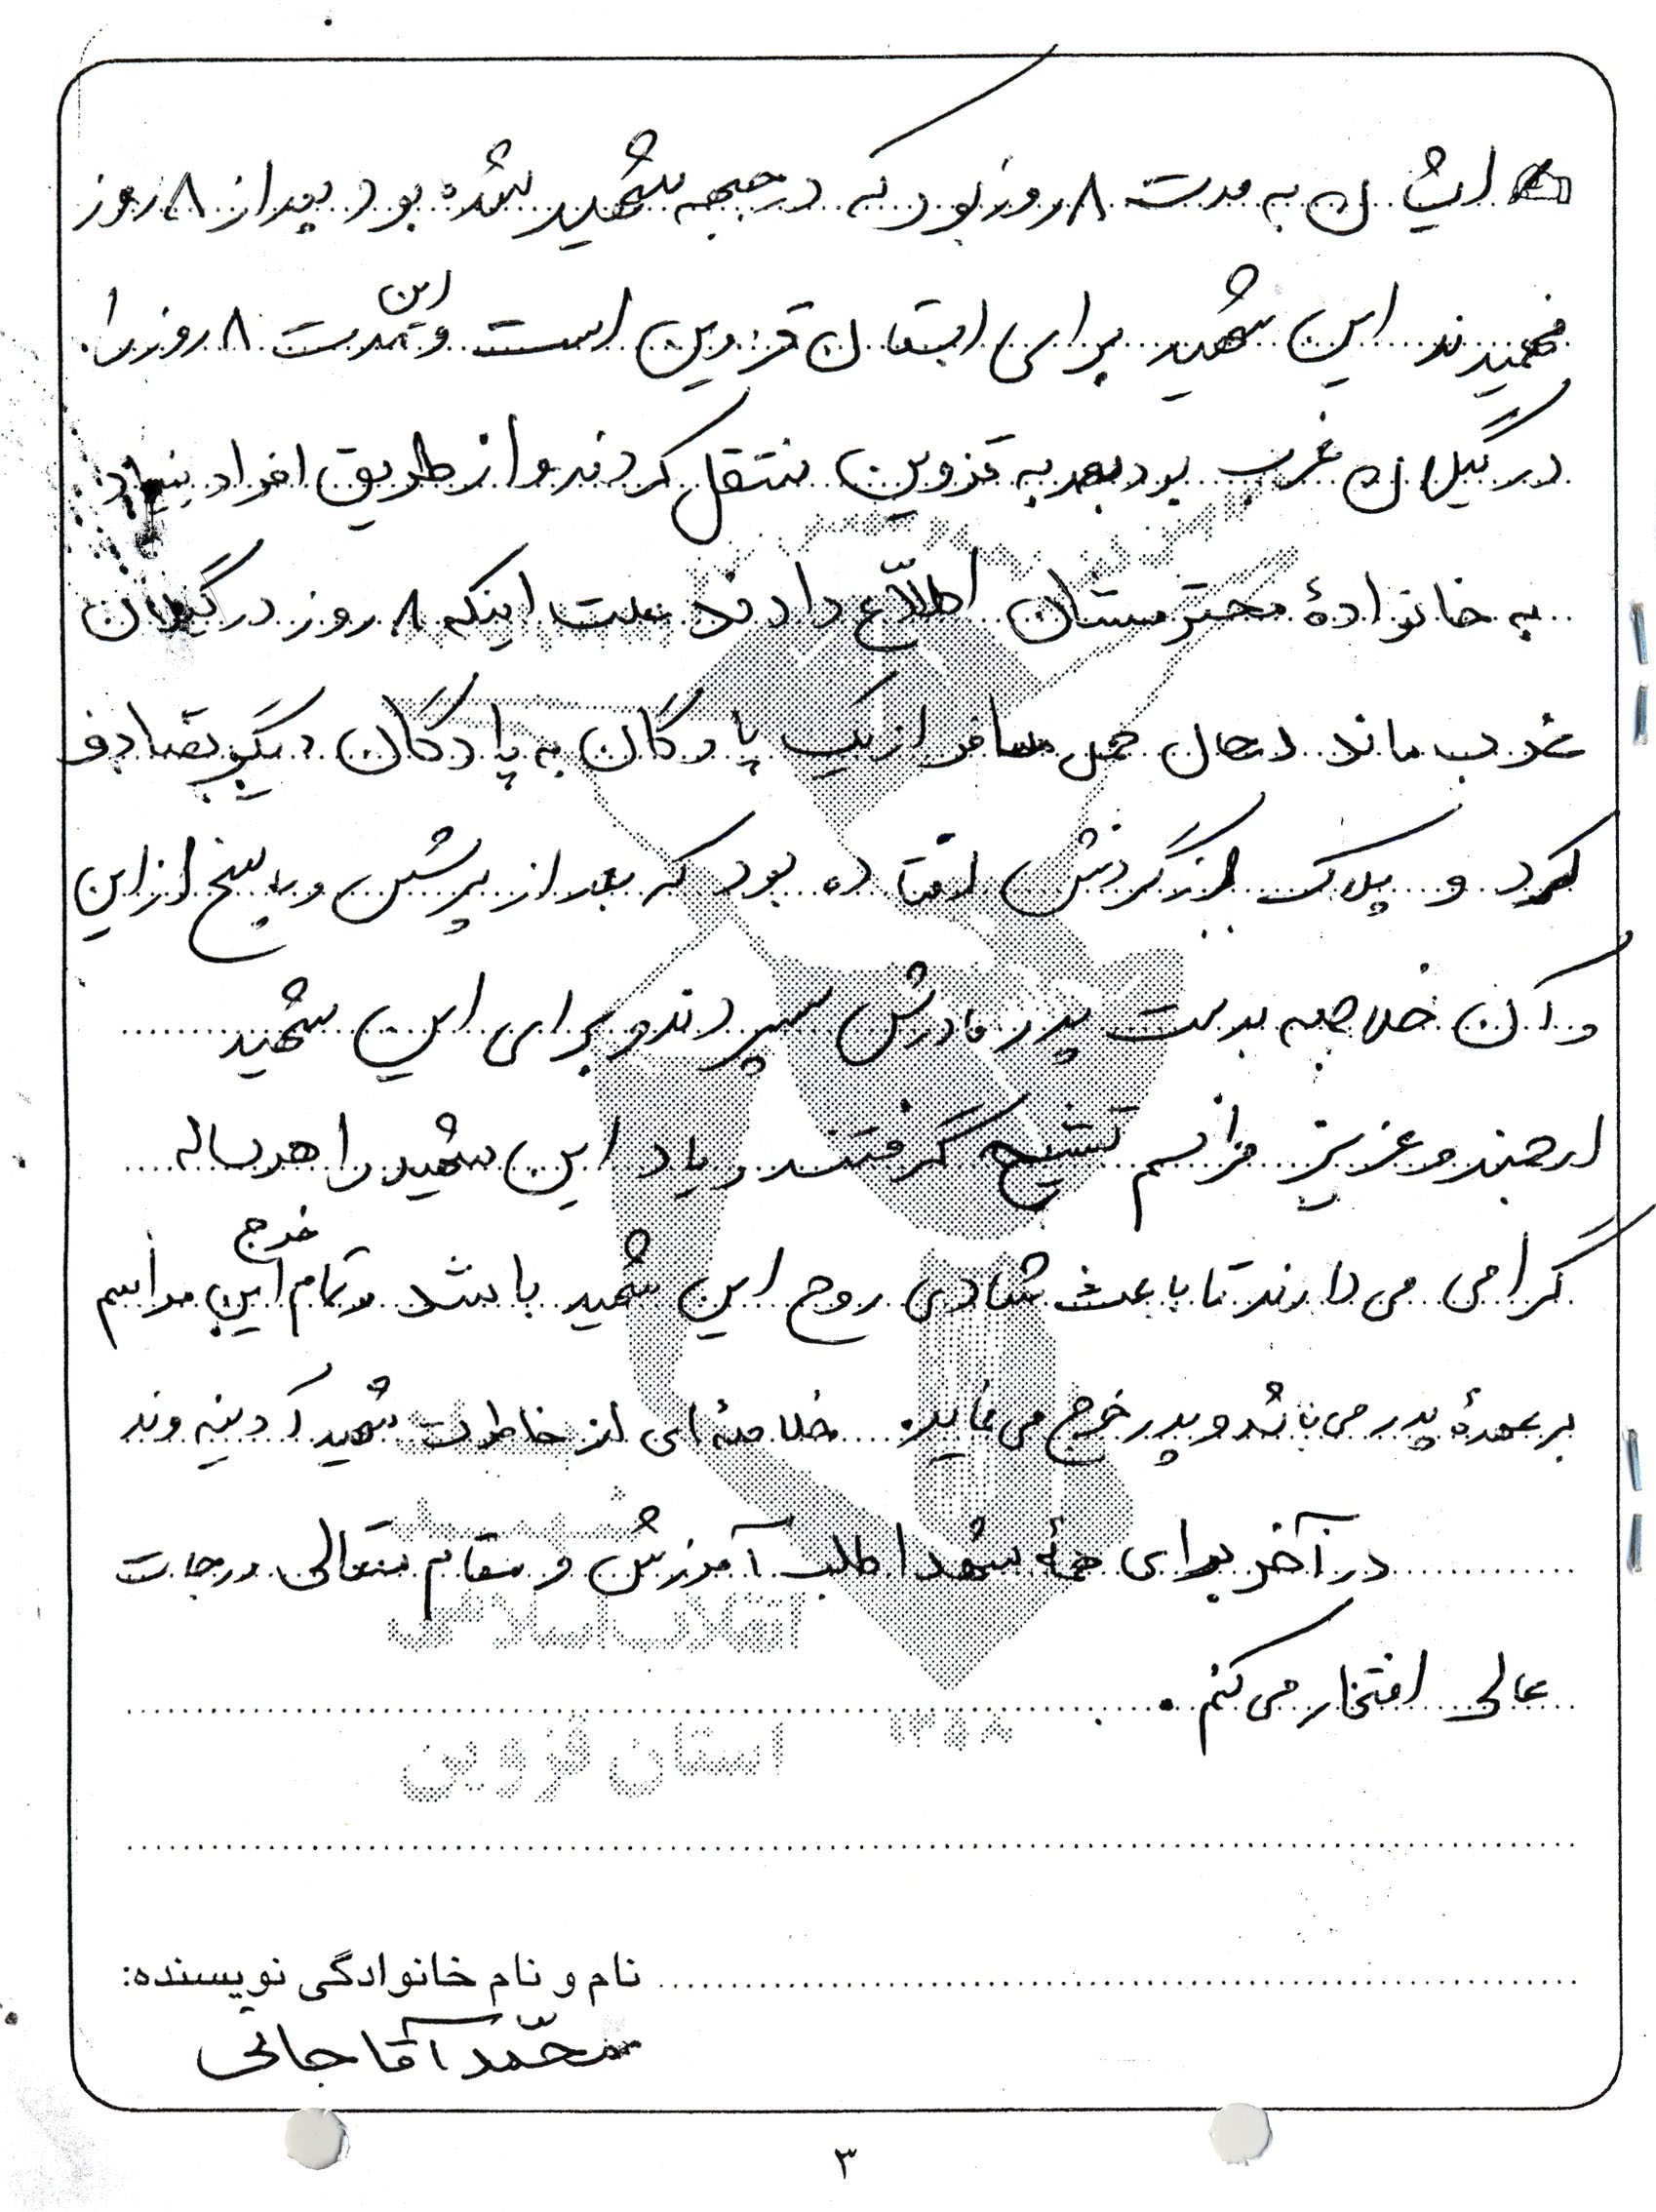 ایشان به مدت ۸ روز بود که در جبهه شهید شده بود بعد از ۸ روز
فهمیدند این شهید برای استان قزوین است و این مدت ۸ روز را
در گیلان غرب بود بعد به قزوین منتقل کردند و از طریق افراد بنیاد
به خانوادهٔ محترمشان اطلّاع دادند علت اینکه ۸ روز در گیلان
غرب ماند درحال حمل مسافر از یک پادگان به پادگان دیگر تصادف
کرد و پلاک از گردنش افتاده بود که بعد از پرسش و پاسخ از این
و آن خلاصه بدست پدر مادرش سپردند و برای این شهید
ارجمند و عزیز مراسم تشیح گرفتند و یاد این شهید را هرساله
گرامی می دارند تا باعث شادی روح این شهید باشد و تمام خرج این مراسم
بر عهدهٔ پدر می باشد و پدر خرج می نماید. خلاصهٔ ای از خاطرات شهید آدینه وند
در آخر برای همهٔ شهدا طلب آمورزش و مقام متعالی درجات
عالی افتخار می کنم.
شهید
انقلاب اسلامی
۱۳۶۸
استان قزوین
نام و نام خانوادگی نویسنده:
محمّد آقاجانی
۳